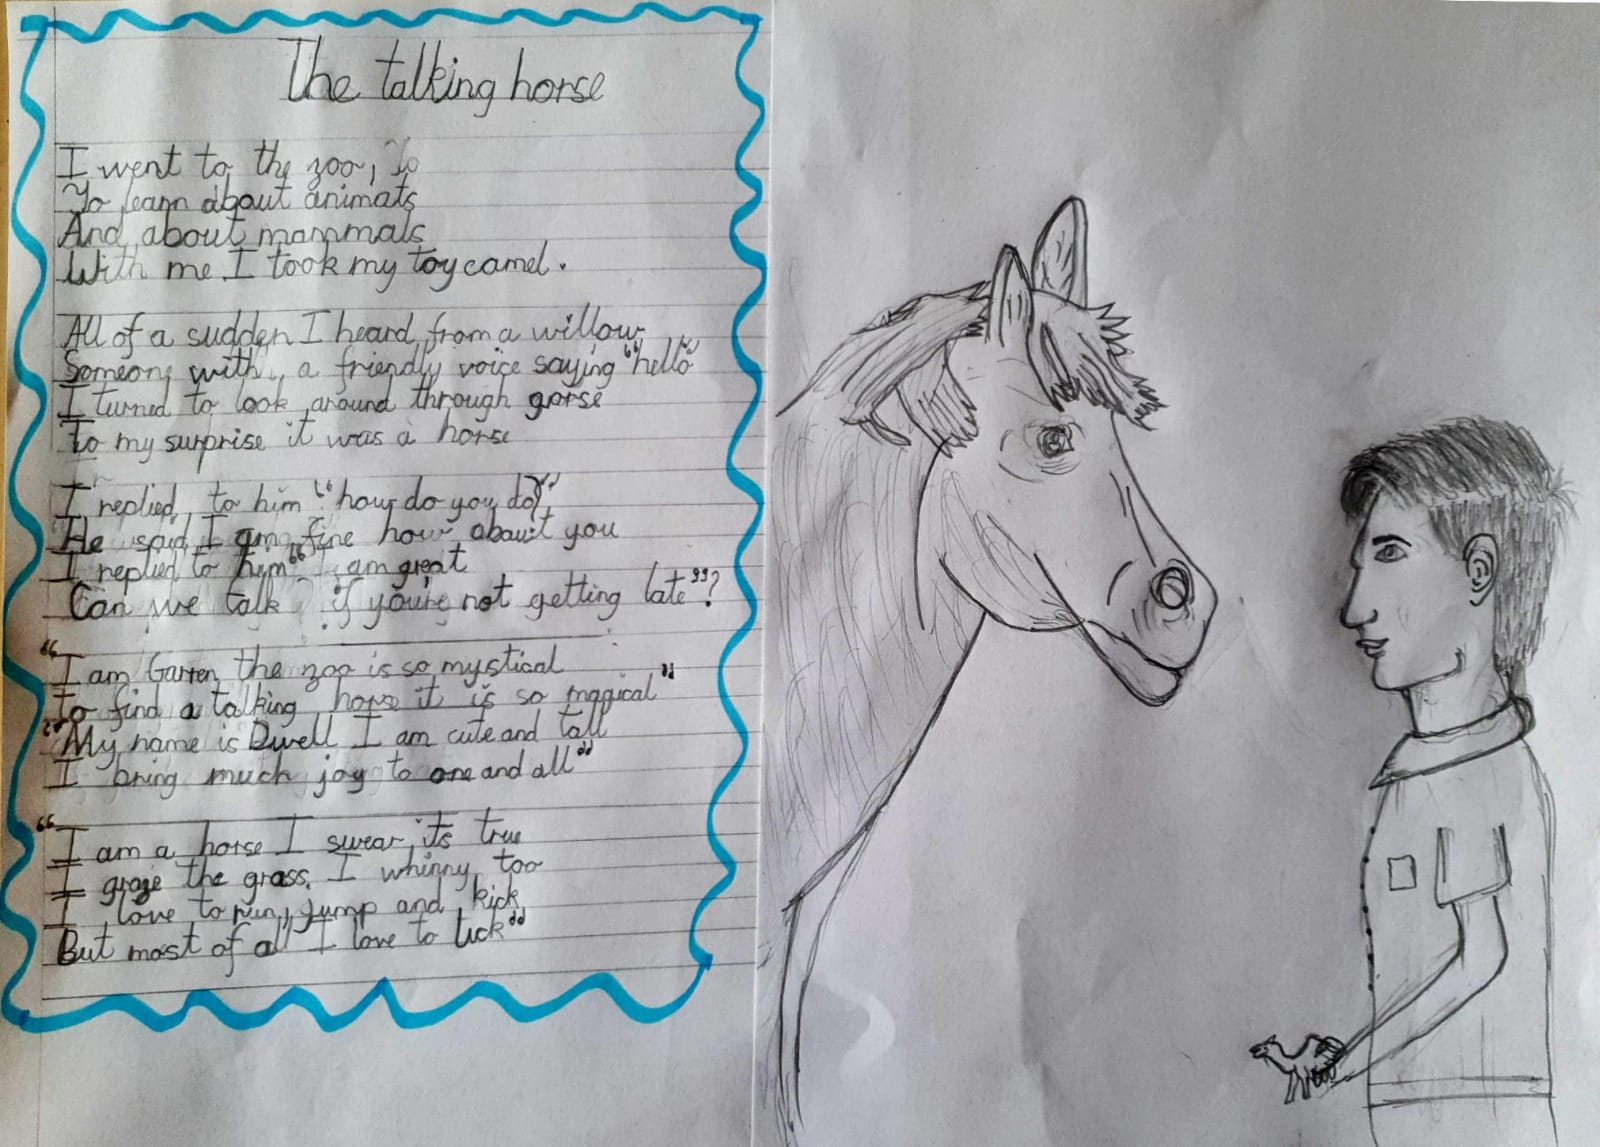 The talking horse
I went to the zoo, To
To learn about animals
And about mammals
With me I took my toy camel.
All of a sudden I heard from a willow
Someone with a friendly voice saying "hello"
I turned to look around through gorse
To my surprise it was a horse
I replied to him "how do you do?"
He said I am fine how about you
I replied to him" I am great
Can we talk if you're not getting late"?
"I am Garren the zoo is so mystical
To find a talking horse it is so magical"
"My name is Dwell I am cute and tall
I bring much joy to one and all"
"I am a horse I swear its true
I graze the grass. I whinny too
I love to run, jump and kick
But most of all I love to lick"